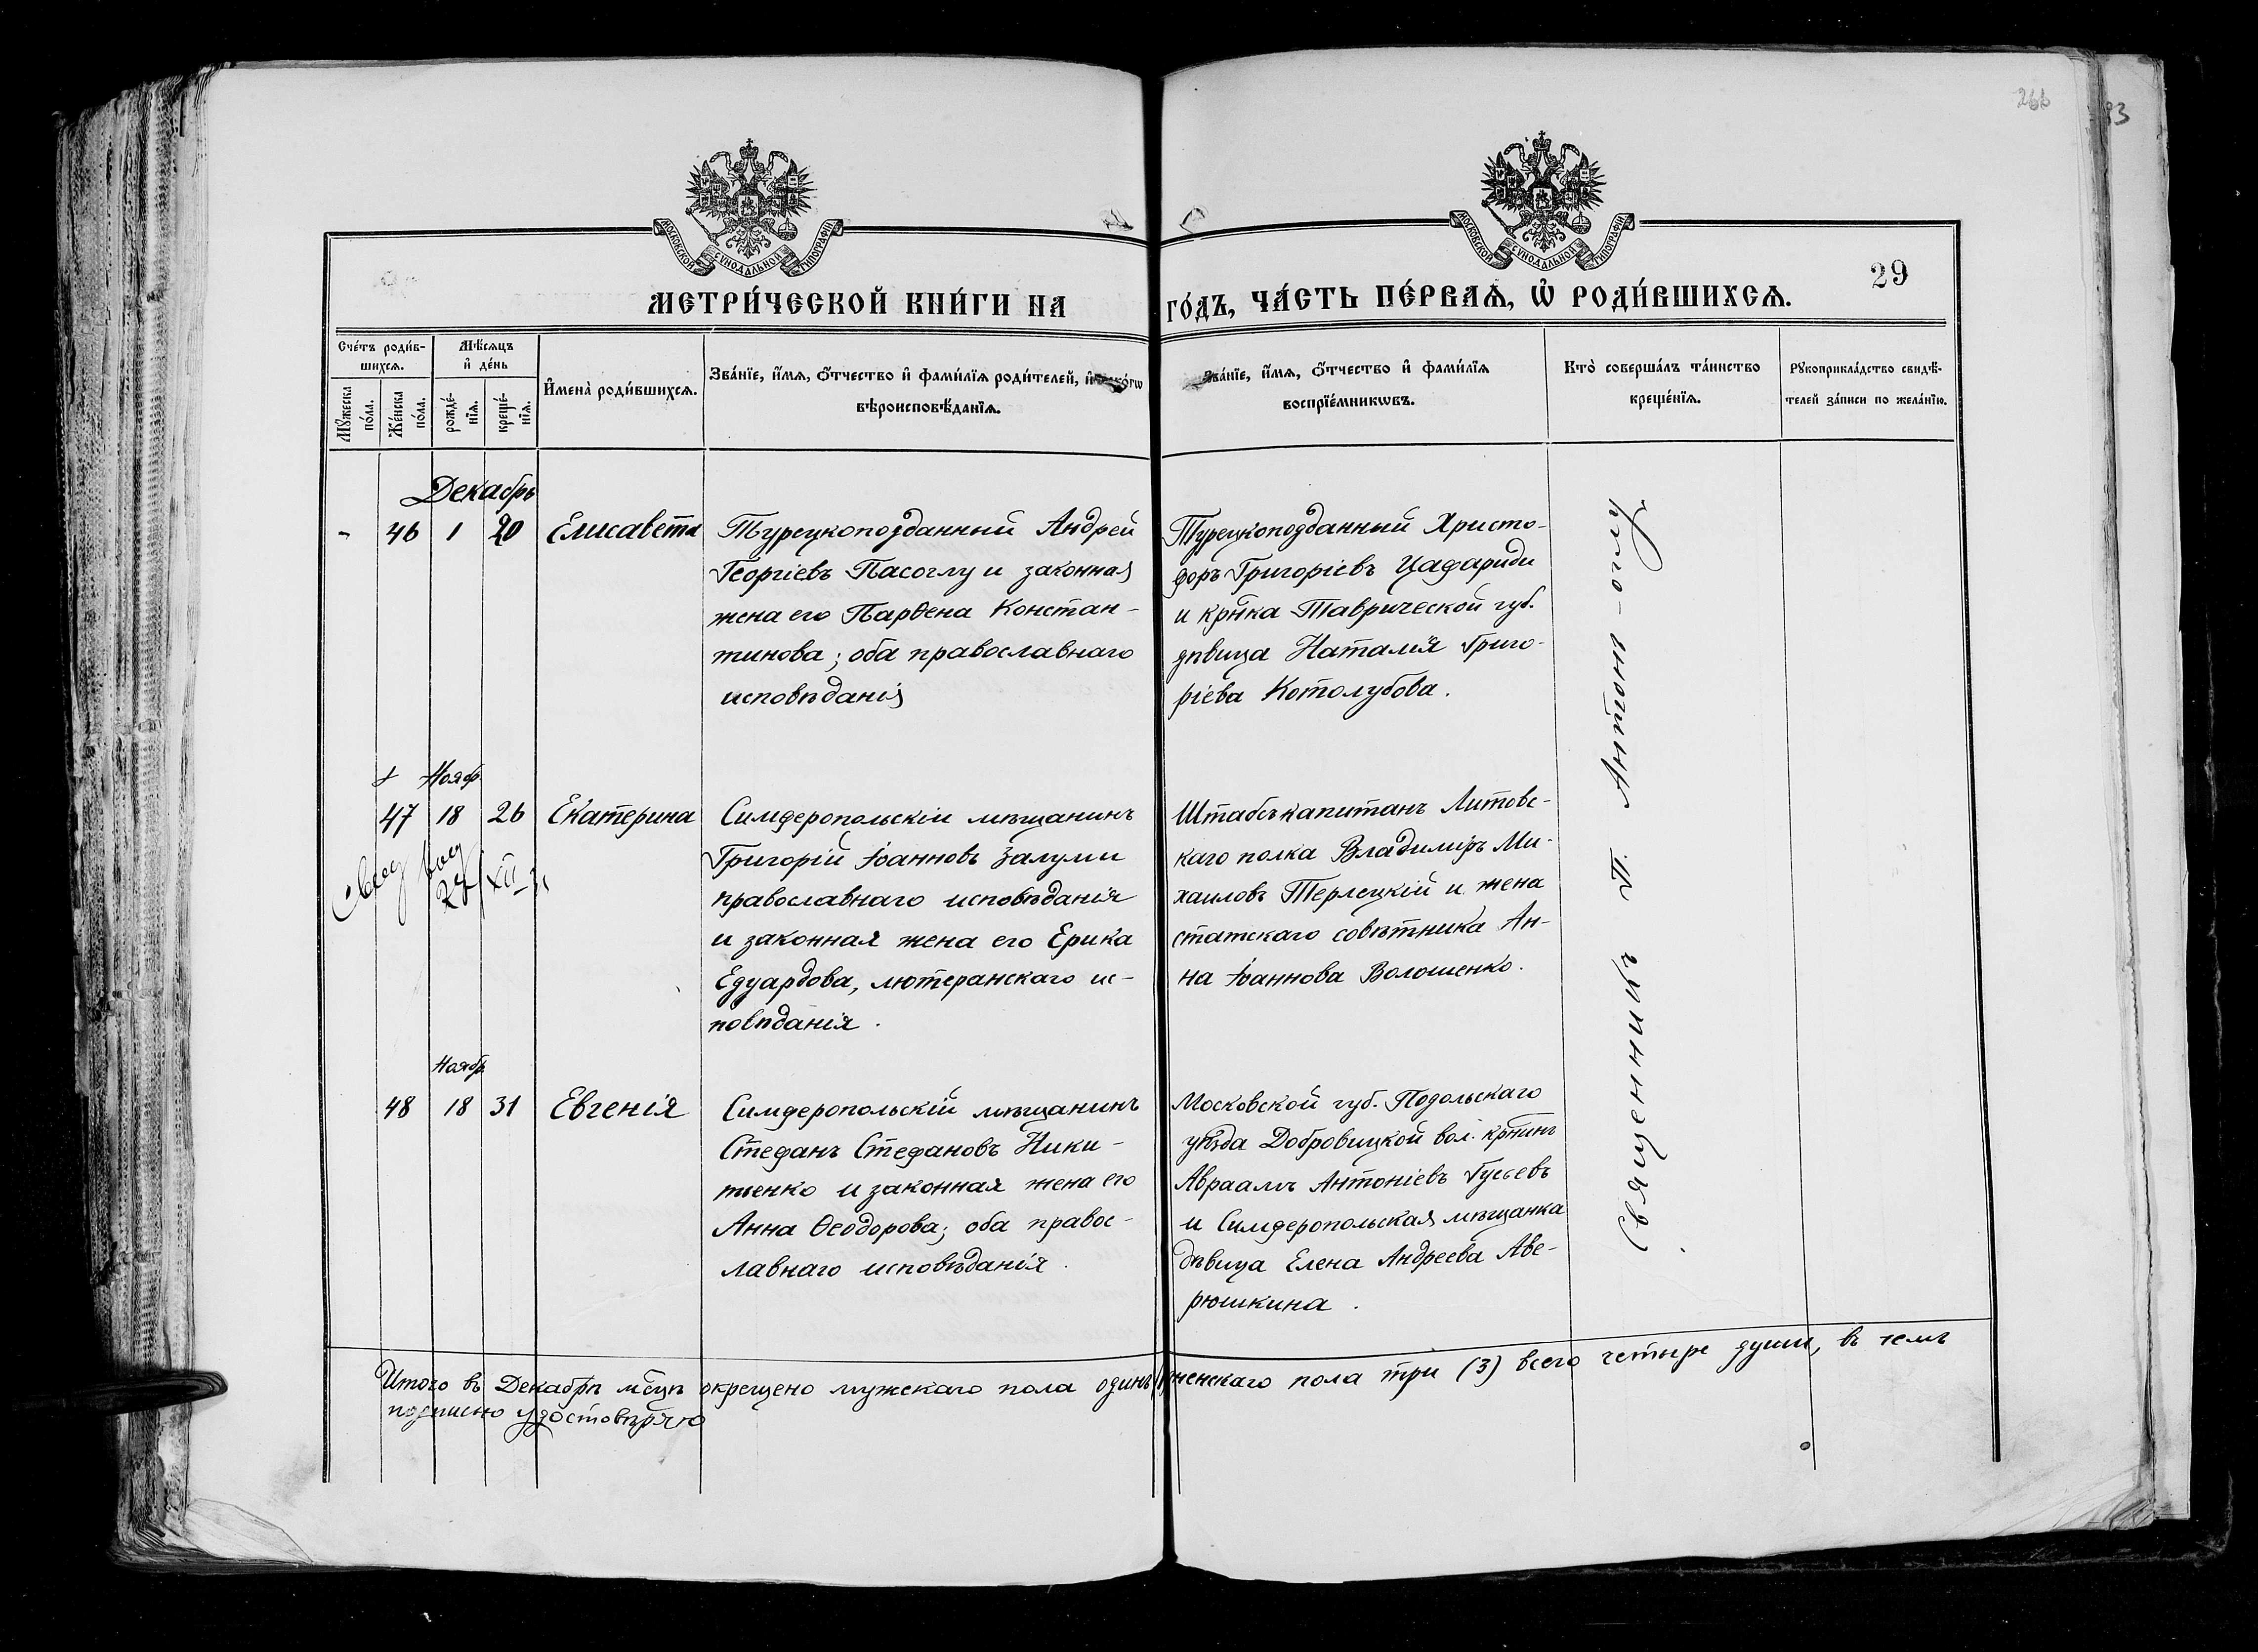 266
83
МОСКОВСКОЙ СѴНОДАЛЬНОЙ ТИПОГРАФІИ
МОСКОВСКОЙ СѴНОДАЛЬНОЙ ТИПОГРАФІИ
29
МЕТРИ́ЧЕСКОЙ КНИ́ГИ НА ГО́ДЪ, ЧА́СТЬ ПЕ́РВАѦ, Ѡ҆ РОДИ́ВШИХСѦ.
Сче́тъ роди́в-
шихсѧ.
Мꙋжеска по́ла.
Же́нска по́ла.
Мѣ́сѧцъ
и҆ де́нь
рожде́-
нїѧ.
креще́-
нїѧ.
И҆мена̀ роди́вшихсѧ.
Зва́нїе, и҆́мѧ, ѻ҆́тчество и҆ фами́лїѧ роди́телей, и҆ како́гѡ
вѣроисповѣ́данїѧ.
Зва́нїе, и҆́мѧ, ѻ҆́тчество и҆ фами́лїѧ
воспрїе́мникѡвъ.
Кто̀ соверша́лъ та́инство
креще́нїѧ.
Рꙋкоприкла́дство свидѣ́-
телей за́писи по жела́нїю.
Декабрь
- 46 1 20 Елисавета
Турецкоподданный Андрей
Георгіевъ Пасоглу и законная
жена его Парѳена Констан-
тинова; оба православнаго
исповѣданія
Турецкоподданный Христо-
форъ Григоріевъ Цафариди
и крнка Таврической губ.
дѣвица Наталія Григо-
ріева Котолубова.
Нояб.
47 18 26 Екатерина
23/XII
Симферопольскій мѣщанинъ
Григорій Іоанновъ Залуми
православнаго исповѣданія
и законная жена его Ерика
Едуардова, лютеранскаго ис-
повѣданія.
Штабсъ капитанъ Литовс-
каго полка Владиміръ Ми-
хаиловъ Терлецкій и жена
статскаго совѣтника Ан-
на Іоаннова Волошенко.
Ноябр.
48 18 31 Евгенія
Симферопольскій мѣщанинъ
Стефанъ Стефановъ Ники-
тенко и законная жена его
Анна Ѳеодорова; оба правос-
лавнаго исповѣданія.
Московской губ. Подольскаго
уѣзда Добровицкой вол. крнинъ
Авраамъ Антоніевъ Гусевъ
и Симферопольская мѣщанка
дѣвица Елена Андреева Аве-
рюшкина.
Священникъ П. Антон-оглу
Итого въ Декабрѣ мсцѣ окрещено мужскаго пола одинъ женскаго пола три (3) всего четыре души, въ чемъ
подписью удостовѣряю